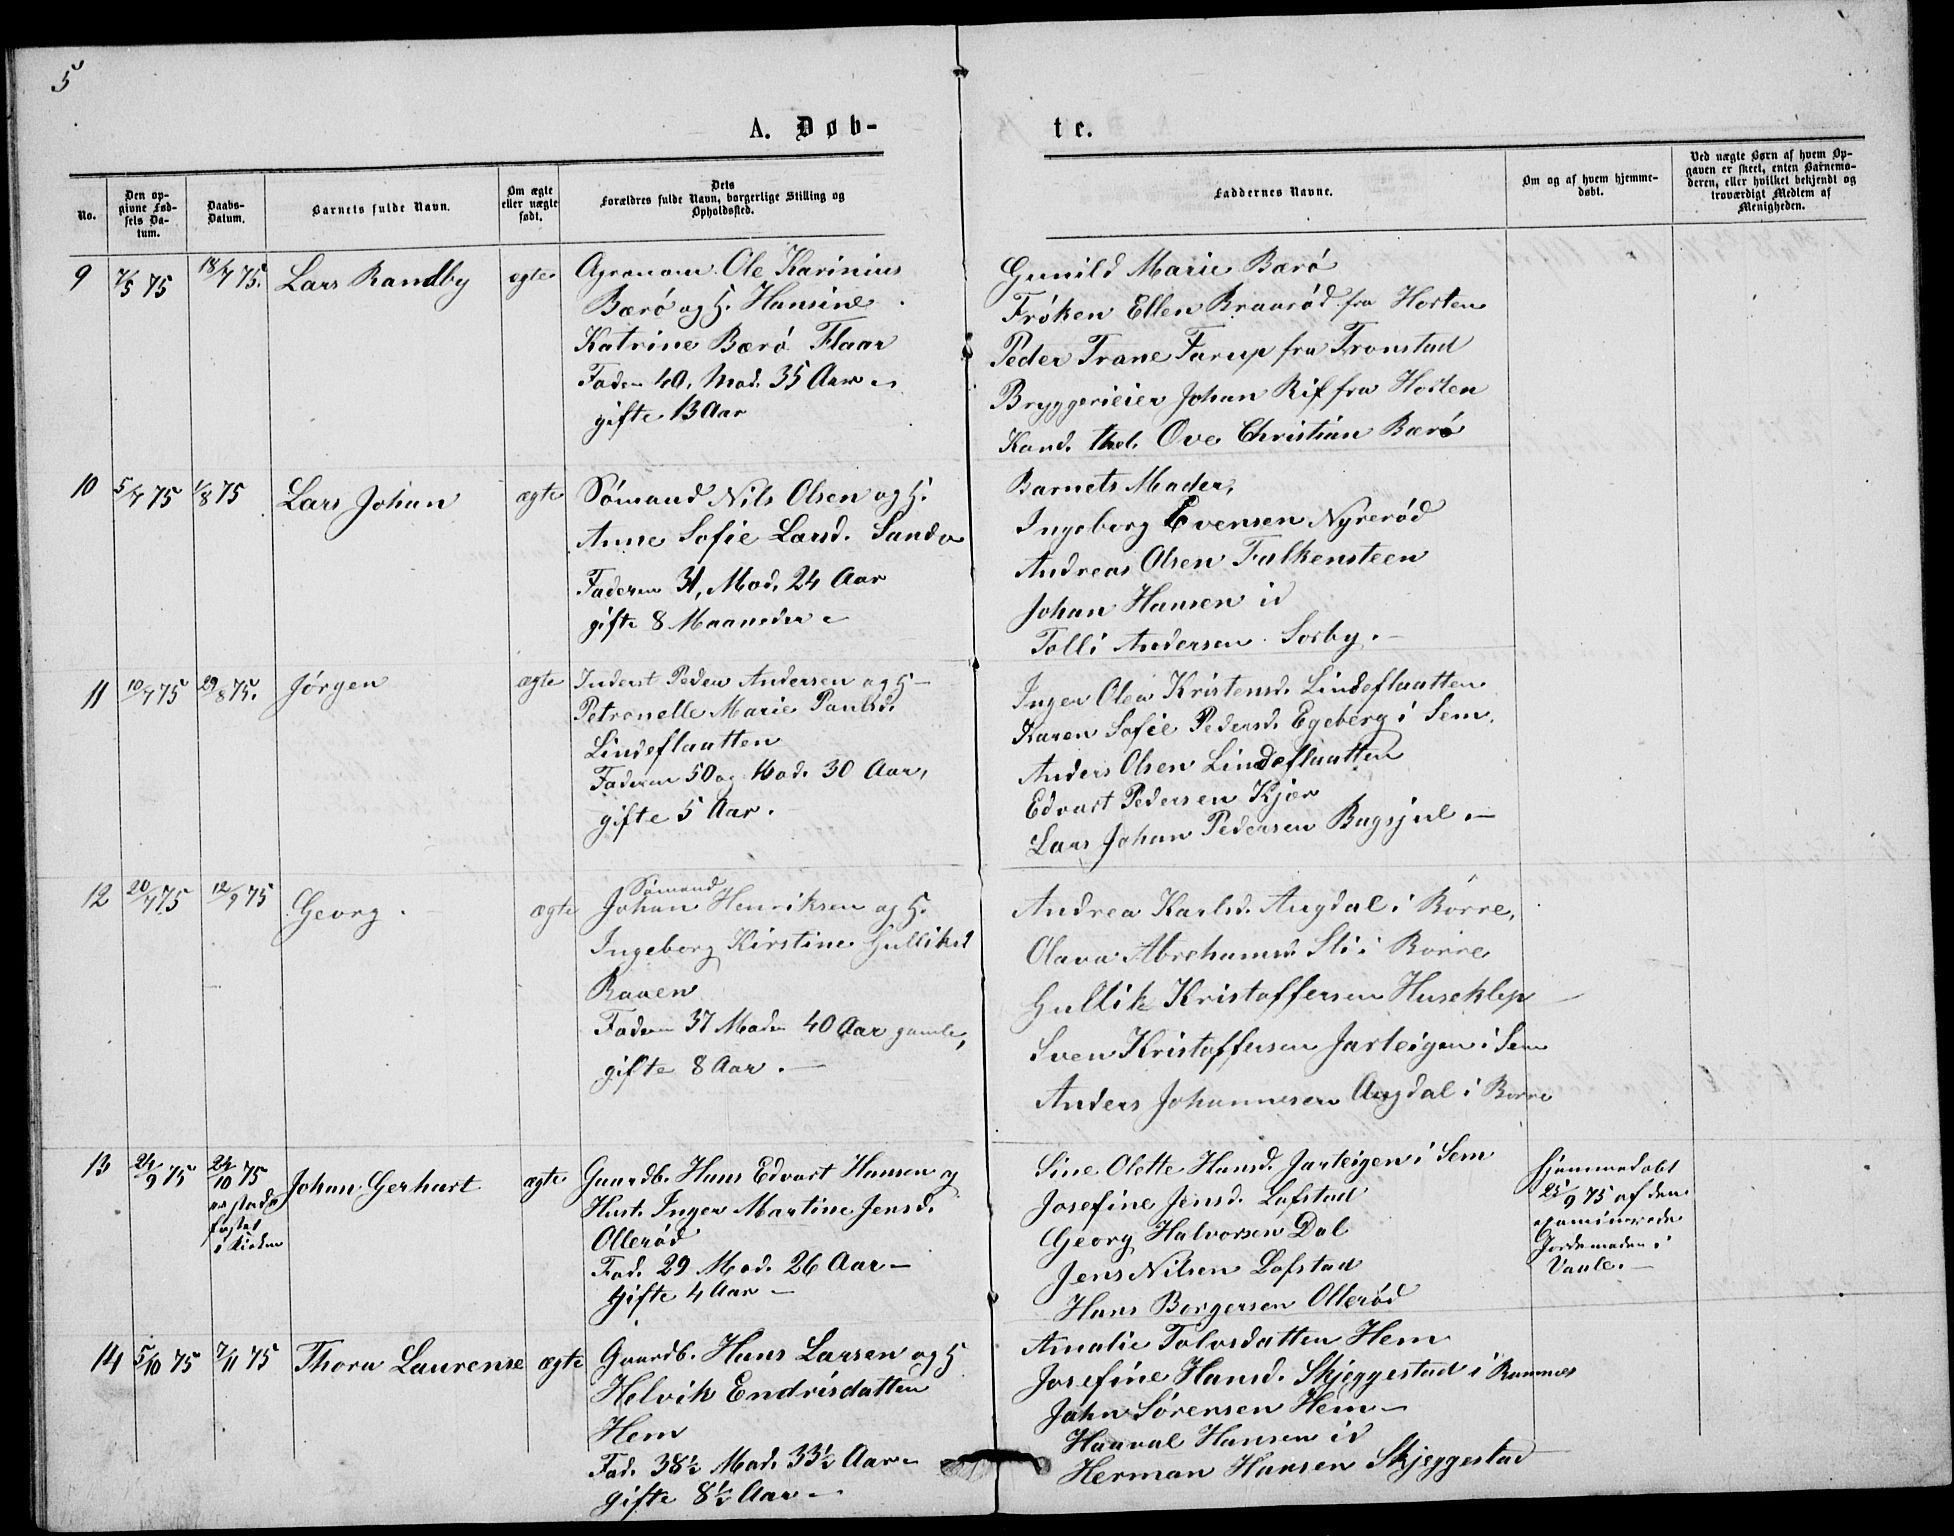 5
A. Døb-
te.
No.
Den op-
givne Fød-
sels Da-
tum.
Daabs-
Datum.
Barnets fulde Navn.
Om ægte
eller uægte
født.
Dets
Forældres fulde Navn, borgerlige Stilling og
Opholdssted.
Faddernes Navne.
Om og af hvem hjemme-
døbt.
Ved uægte Børn af hvem Op-
gaven er skeet, enten Barnemo-
deren, eller hvilket bekjendt og
troværdigt Medlem af
Menigheden.
9 7/5 75 18/7 75. Lars Randby ægte
Agronom Ole Karinius
Bærø og H. Hansine
Katrine Bærø Flaar
Faden 40, Mod. 35 Aar
gifte 13 Aar
Gunild Marie Bærø
Frøken Ellen Braarød fra Horten
Peder Trane Farup fra Tronstad
Bryggerieier Johan Rif fra Horten
Kand. theol. Ove Christian Bærø
10 5/7 75 1/8 75 Lars Johan ægte
Sømand Nils Olsen og H.
Anne Sofie Larsd. Sande
Faderen 31, Mod. 24 Aar
gifte 8 Maaneder
Barnets Moder,
Ingeborg Evensen Nyrerød
Andreas Olsen Falkensteen
Johan Hansen id
Tolli Andersen Sørby.
11 10/7 75 29/8 75. Jørgen ægte
Inderst Peder Andersen og H
Petronelle Marie Paulsd.
Lindeflaatten
Faderen 50 og Mod. 30 Aar,
gifte 5 Aar.
Inger Olea Kristensd. Lindeflaatten
Karen Sofie Pedersd. Egeberg i Sem.
Anders Olsen Lindeflaatten
Edvart Pedersen Kjær
Lars Johan Pedersen Bugsjul.
12 20/7 75 12/9 75 Georg. ægte
Sømand
Johan Henriksen og H.
Ingeborg Kirstine Gulliksd
Raaen
Faderen 37 Moden 40 Aar gamle,
gifte 8 Aar.
Andrea Karlsd. Augdal i Borre,
Olava Abrahamsd. Sti i Borre
Gullik Kristoffersen Huseklep
Sven Kristoffersen Jarteigen i Sem
Anders Johannesen Augdal i Borre
13 24/9 75 24/10 75 Johan Gerhart ægte
fæstet
i Kirken
Gaardb. Hans Edvart Hansen og
Hust. Inger Martine Jensd.
Ollerød
Fad. 29 Mod. 26 Aar
Gifte 4 Aar
Sine Olette Hansd. Jarteigen i Sem
Josefine Jensd. Lofstad
Georg Halvorsen Dal
Jens Nilsen Lofstad
Hans Borgersen Ollerød
hjemmedøbt
25/9 75 af den
examinerede
Jordemoder i
Vaale.
14 5/10 75 7/11 75 Thora Laurense ægte
Gaardb. Hans Larsen og H
Helvik Endrisdatten
Hem
Fad. 38½ Mod. 33½ Aar
gifte 8½ Aar
Amalie Tolvsdatten Hem
Josefine Hansd. Skjeggestad i Ramnes
John Sørensen Hem
Haaval Hansen id
Herman Hansen Skjeggestad